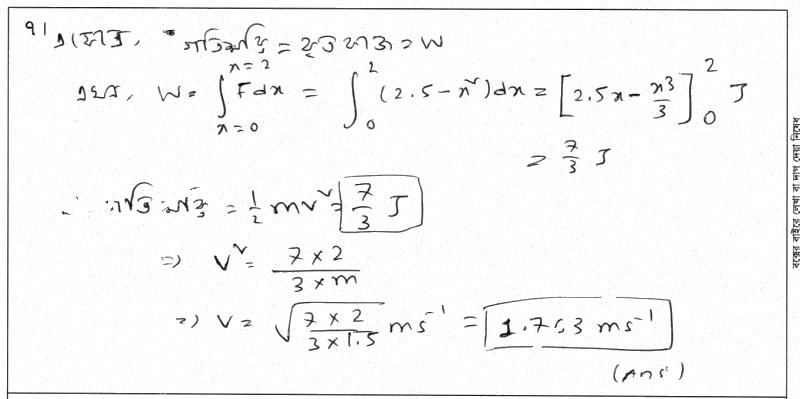 ৭। এক্ষেত্রে, গতিশক্তি = কৃতকাজ = W
x = 2
এখন, W = ∫ F dx = ∫₀² (2.5 - x²) dx = [2.5x - x³/3]₀² J
x = 0
= 7/3 J
∴ গতিশক্তি = 1/2 mv² = 7/3 J
⇒ v² = 7 × 2 / 3 × m
⇒ v = √(7 × 2 / 3 × 1.5) ms⁻¹ = 1.763 ms⁻¹
(Ans)
বক্সের বাইরে লেখা বা দাগ দেয়া নিষেধ